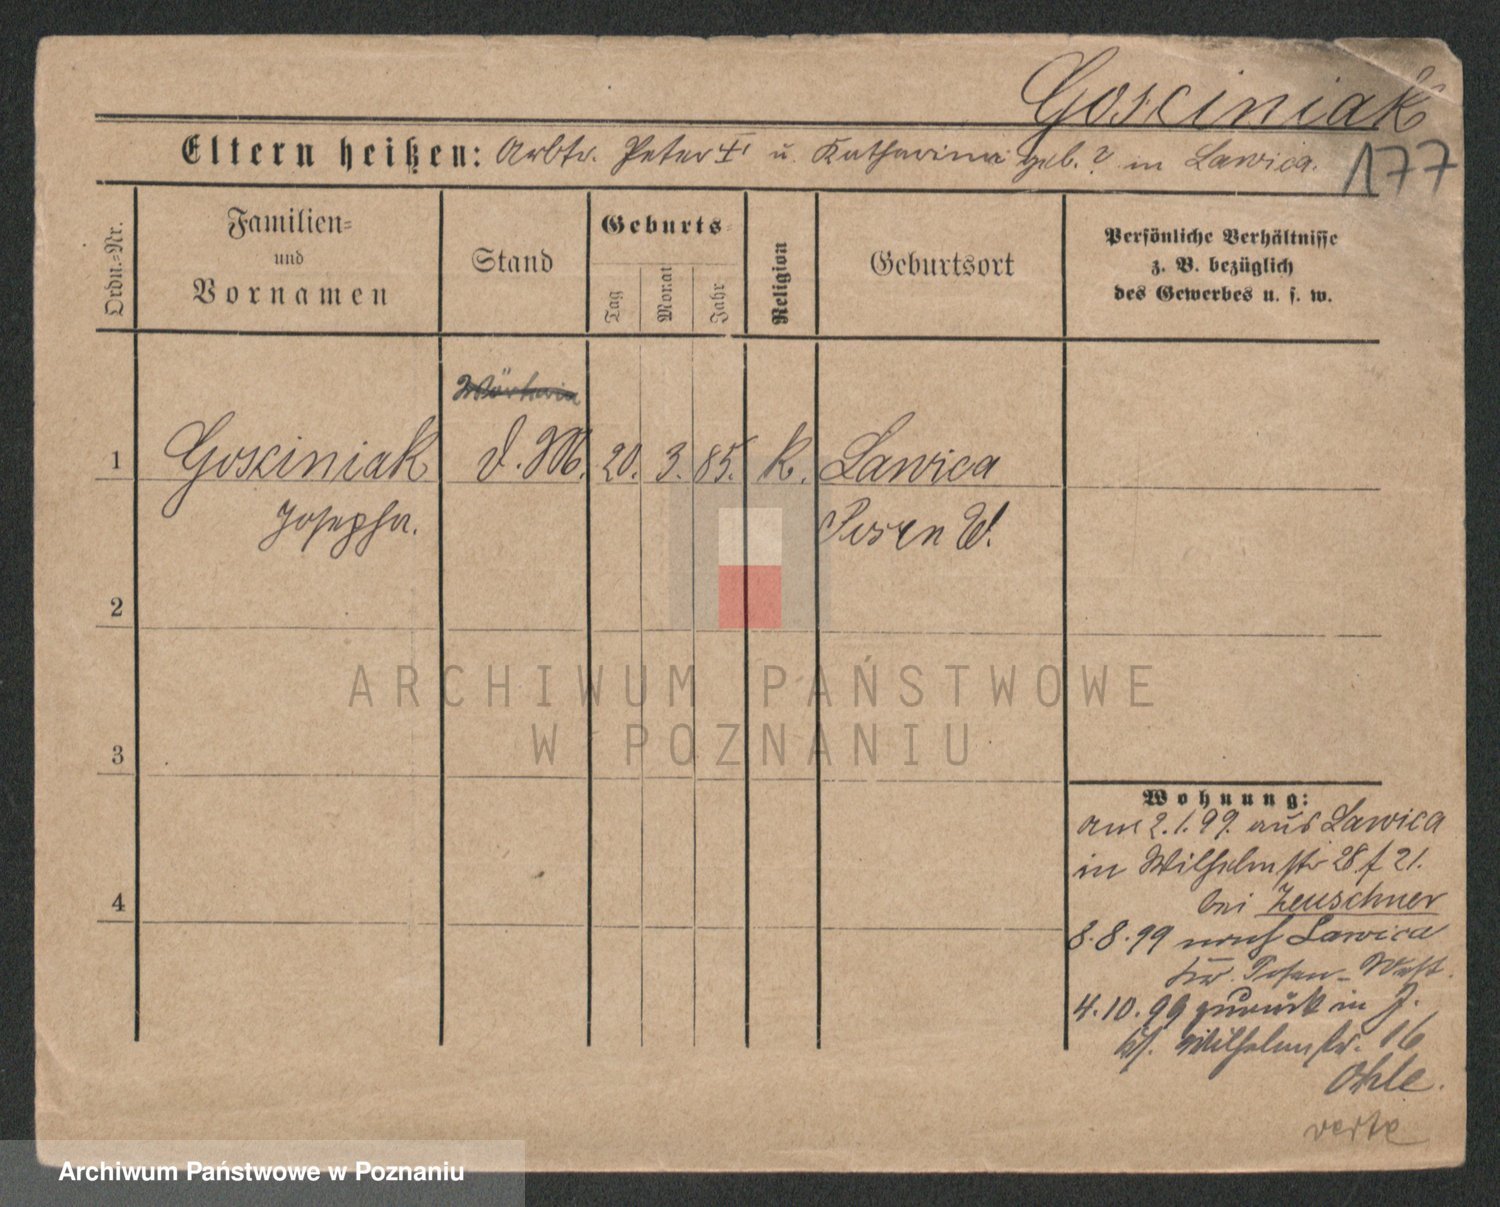 Gosciniak
177
Eltern heißen: Arbtr. Peter u. Katharina geb. ? in Lawica.
Ordn.-Nr.
Familien-
und
Vornamen
Stand
Geburts-
Tag
Monat
Jahr
Religion
Geburtsort
Persönliche Verhältnisse
z. B. bezüglich
des Gewerbes u. s. w.
1 Gosciniak d. M. 20. 3. 85. k. Lawica
Josepha. Posen W.
2
3
4
ARCHIWUM PAŃSTWOWE
W POZNANIU
Wohnung:
am 2.1.99. aus Lawica
in Wilhelmstr 28 f 21.
bei Zeuschner
8.8.99 nach Lawica
Kr. Posen-West.
4.10.99 zurück in J.
Wilhelmstr. 16
Ohle.
verte
Archiwum Państwowe w Poznaniu